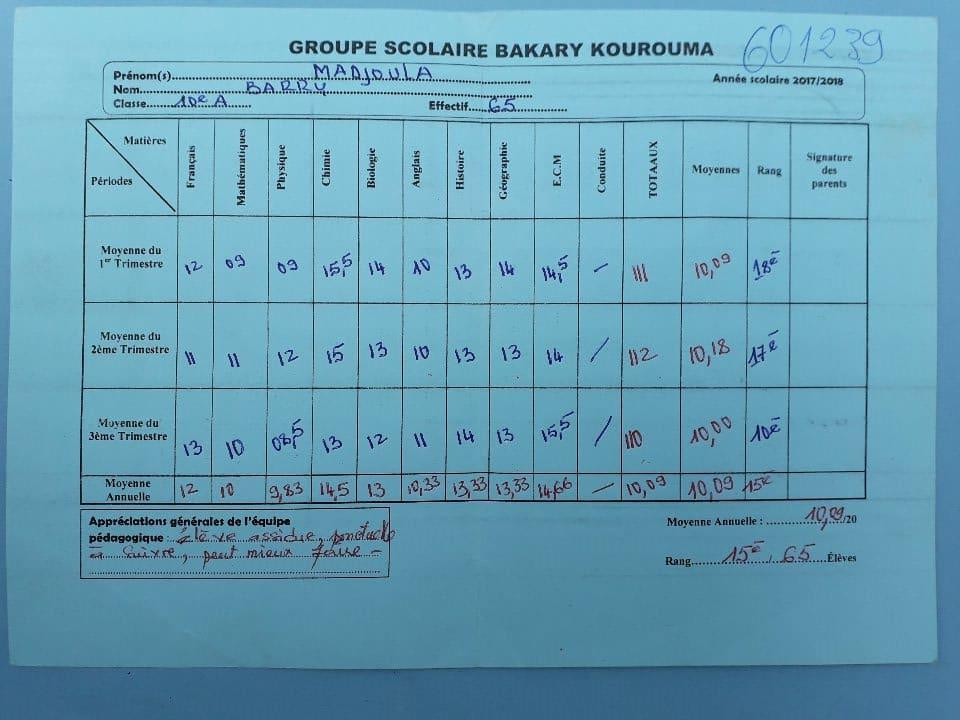 GROUPE SCOLAIRE BAKARY KOUROUMA
601239
Prénom(s) MADJOULA
Année scolaire 2017/2018
Nom BARRY
Classe 10e A Effectif 65
Matières
Périodes
Français Mathématiques Physique Chimie Biologie Anglais Histoire Géographie E.C.M Conduite TOTAAUX Moyennes Rang Signature des parents
Moyenne du 1er Trimestre 12 09 09 15,5 14 10 13 14 14,5 – 111 10,09 18e
Moyenne du 2ème Trimestre 11 11 12 15 13 10 13 13 14 / 112 10,18 17e
Moyenne du 3ème Trimestre 13 10 08,5 13 12 11 14 13 15,5 / 110 10,00 10e
Moyenne Annuelle 12 10 9,83 14,5 13 10,33 13,33 13,33 14,66 – 10,09 10,09 15e
Appréciations générales de l'équipe
pédagogique : Elève assidue, ponctuelle
à suivre, peut mieux faire –
Moyenne Annuelle : 10,09/20
Rang 15e / 65 Élèves